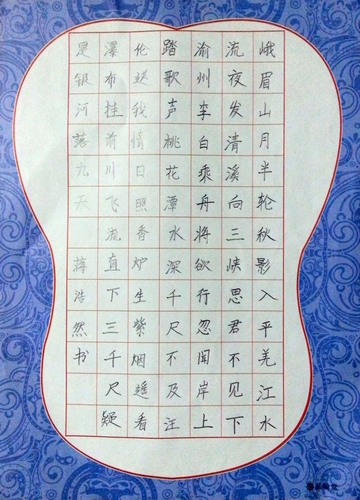 峨眉山月半轮秋影入平羌江水
流夜发清溪向三峡思君不见下
渝州李白乘舟将欲行忽闻岸上
踏歌声桃花潭水深千尺不及汪
伦送我情日照香炉生紫烟遥看
瀑布挂前川飞流直下三千尺疑
是银河落九天 蒋浩然书